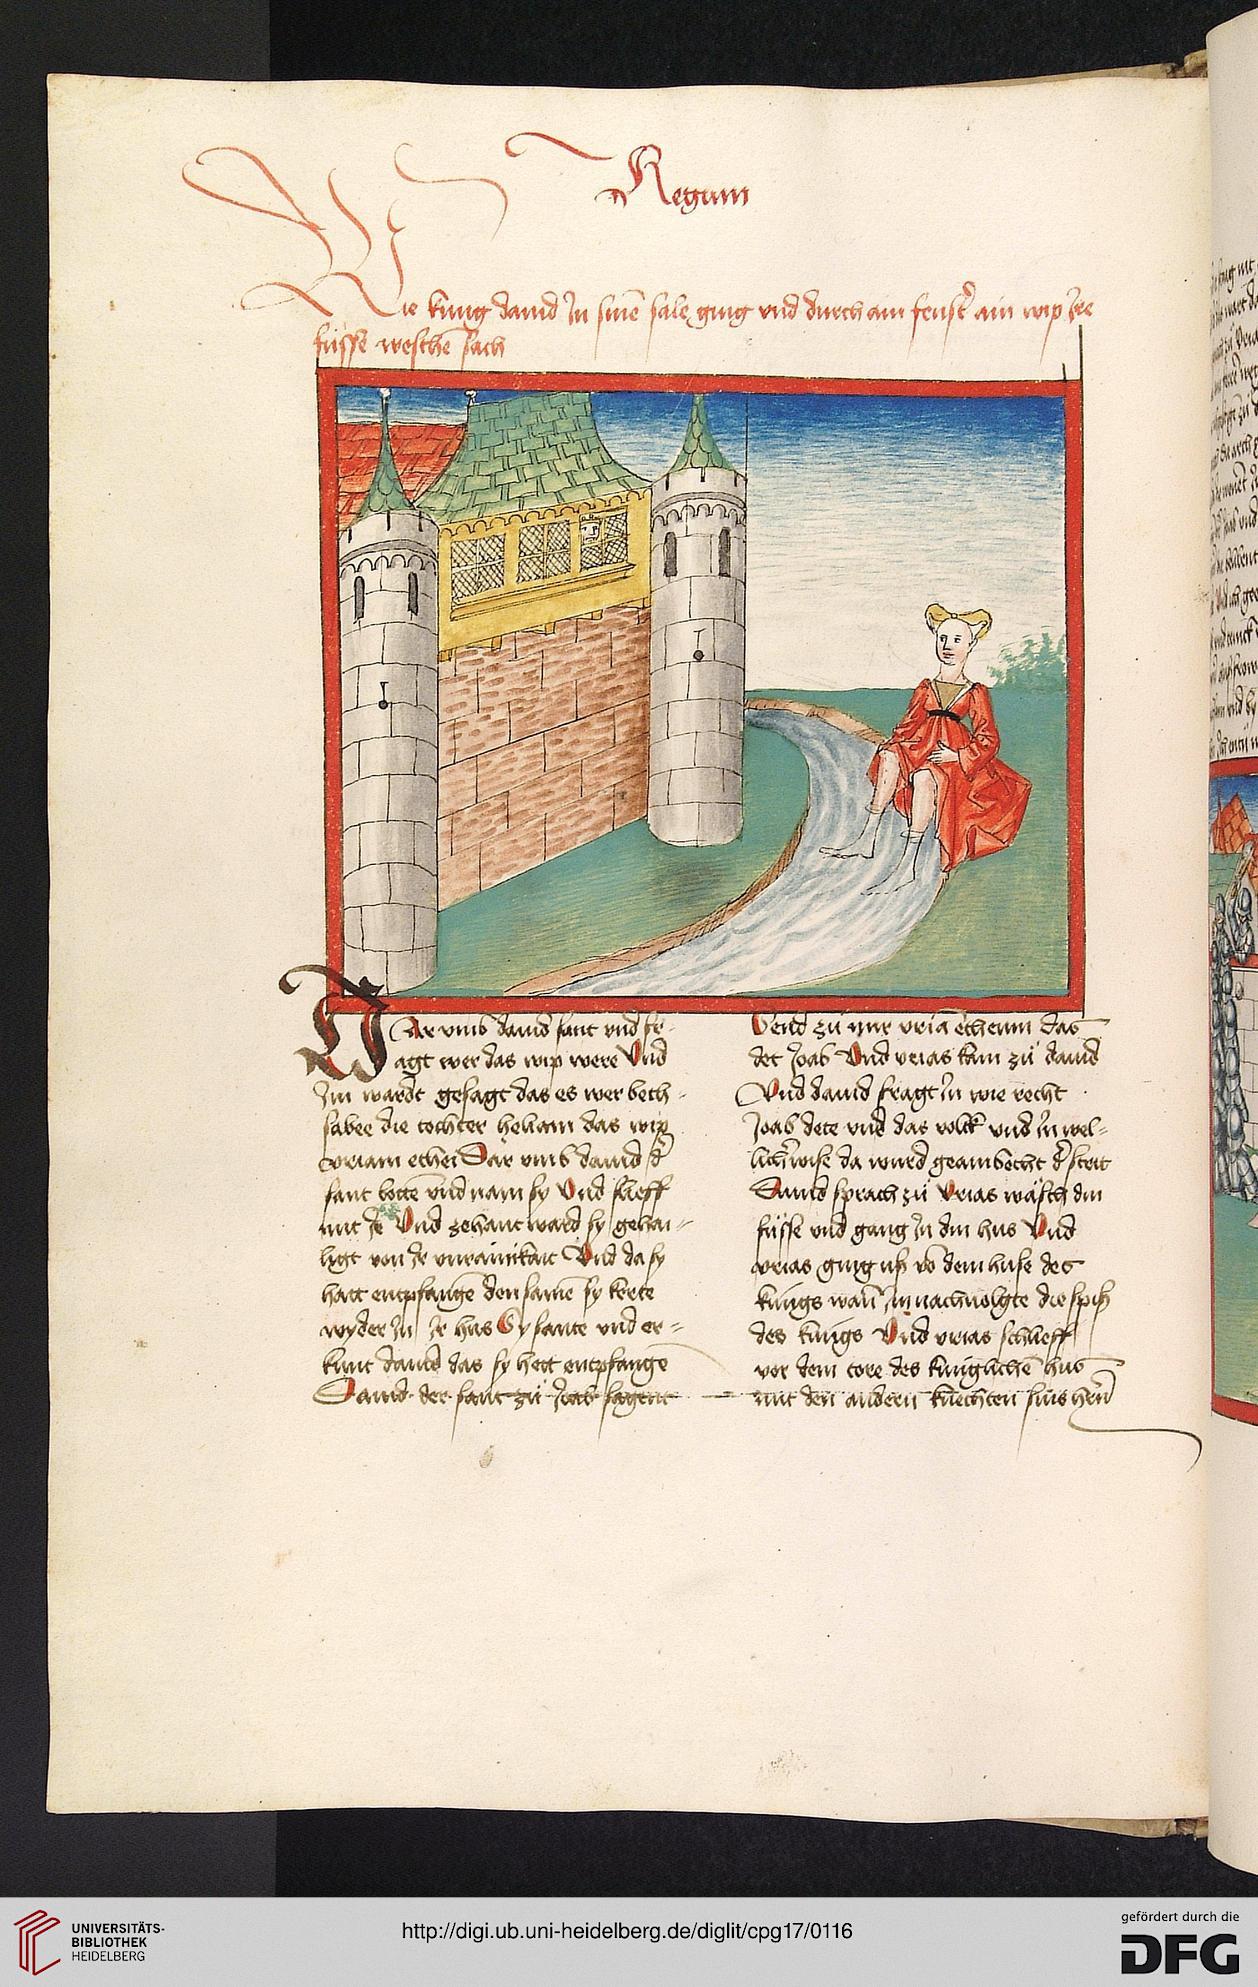 Regum
Wie kunig dauid Jn sine͂ sale ging vnd durch ain fenst͛ ain wip Jre
füsse wesche͂ sach
DAr vmb dauid sant vnd fr-
agt wer das wip were Vnd
Jm wardt gesagt das es wer beth-
sabee die tochter heliam das wip
vriam ethei Dar vmb dauid d͛
sant botte͂ vnd nam sy Vnd schlieff
mit Jr Vnd zehant ward sy gehai-
ligt von Jr vnrainikait Vnd da sy
hatt entpfange͂ den same͂ sy kerte
wyder Jn Jr hus Sy sante vnd er-
kunt dauid das sy hett entpfange͂
Dauid der sant zü Joab sagent
Send zü mir vria etheum das
det Joab Vnd vrias kam zü dauid
Vnd dauid fragt Jn wie recht
Joab dete vnd das volck vnd Jn wel-
lich͛ wise da wurd geambecht d͛ streit
Dauid sprach zü vrias wäsch din
füsse vnd gang Jn din hus Vnd
vrias ging usz vo͂ dem huse des
kunigs wan͂ Jm nachuolgte die spisz
des kunigs Vnd vrias schlieff
vor dem tore des kuniglichen͂ hus
mit den anderen knechten sins hern͂
UNIVERSITÄTS-
BIBLIOTHEK
HEIDELBERG
http://digi.ub.uni-heidelberg.de/diglit/cpg17/0116
gefördert durch die
DFG